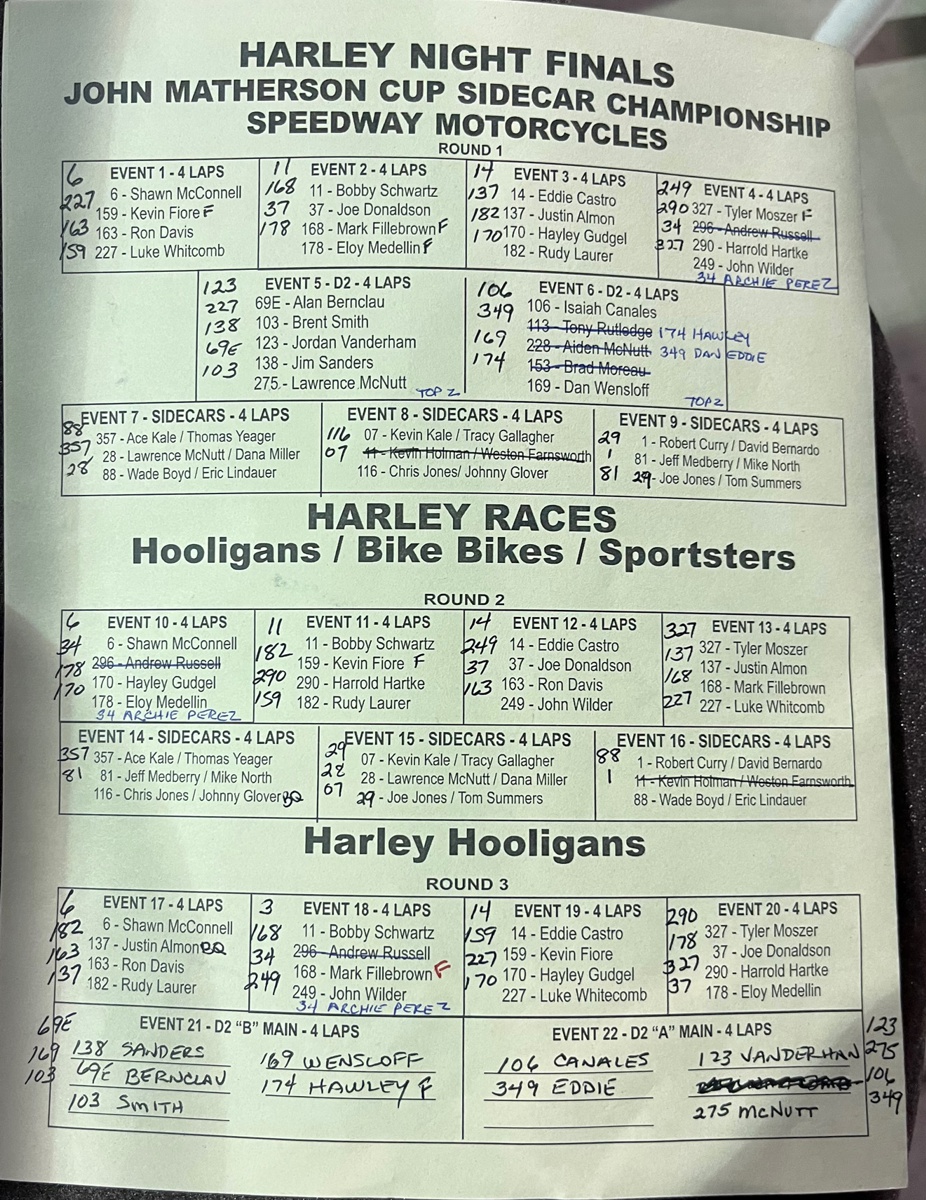 HARLEY NIGHT FINALS
JOHN MATHERSON CUP SIDECAR CHAMPIONSHIP
SPEEDWAY MOTORCYCLES
ROUND 1
6 EVENT 1 - 4 LAPS
227 6 - Shawn McConnell
163 159 - Kevin Fiore F
159 163 - Ron Davis
227 - Luke Whitcomb
11 EVENT 2 - 4 LAPS
168 11 - Bobby Schwartz
37 37 - Joe Donaldson
178 168 - Mark Fillebrown F
178 - Eloy Medellin F
14 EVENT 3 - 4 LAPS
137 14 - Eddie Castro
182 137 - Justin Almon
170 170 - Hayley Gudgel
182 - Rudy Laurer
249 EVENT 4 - 4 LAPS
290 327 - Tyler Moszer F
34 296 - Andrew Russell
327 290 - Harrold Hartke
249 - John Wilder
34 ARCHIE PEREZ
123 EVENT 5 - D2 - 4 LAPS
227 69E - Alan Bernclau
138 103 - Brent Smith
69E 123 - Jordan Vanderham
103 138 - Jim Sanders
275 - Lawrence McNutt
TOP 2
106 EVENT 6 - D2 - 4 LAPS
349 106 - Isaiah Canales
113 - Tony Rutledge 174 HAWLEY
169 228 - Aiden McNutt 349 DAN EDDIE
174 153 - Brad Moreau
169 - Dan Wensloff
TOP 2
88 EVENT 7 - SIDECARS - 4 LAPS
357 357 - Ace Kale / Thomas Yeager
28 28 - Lawrence McNutt / Dana Miller
88 - Wade Boyd / Eric Lindauer
EVENT 8 - SIDECARS - 4 LAPS
116 07 - Kevin Kale / Tracy Gallagher
07 11 - Kevin Holman / Weston Farnsworth
116 - Chris Jones/ Johnny Glover
EVENT 9 - SIDECARS - 4 LAPS
29 1 - Robert Curry / David Bernardo
1 81 - Jeff Medberry / Mike North
81 29 - Joe Jones / Tom Summers
HARLEY RACES
Hooligans / Bike Bikes / Sportsters
ROUND 2
6 EVENT 10 - 4 LAPS
34 6 - Shawn McConnell
178 296 - Andrew Russell
170 170 - Hayley Gudgel
178 - Eloy Medellin
34 ARCHIE PEREZ
11 EVENT 11 - 4 LAPS
182 11 - Bobby Schwartz
159 - Kevin Fiore F
290 290 - Harrold Hartke
159 182 - Rudy Laurer
14 EVENT 12 - 4 LAPS
249 14 - Eddie Castro
37 37 - Joe Donaldson
163 163 - Ron Davis
249 - John Wilder
327 EVENT 13 - 4 LAPS
137 327 - Tyler Moszer
168 137 - Justin Almon
227 168 - Mark Fillebrown
227 - Luke Whitcomb
EVENT 14 - SIDECARS - 4 LAPS
357 357 - Ace Kale / Thomas Yeager
81 81 - Jeff Medberry / Mike North
116 - Chris Jones / Johnny Glover DQ
29 EVENT 15 - SIDECARS - 4 LAPS
28 07 - Kevin Kale / Tracy Gallagher
07 28 - Lawrence McNutt / Dana Miller
29 - Joe Jones / Tom Summers
EVENT 16 - SIDECARS - 4 LAPS
88 1 - Robert Curry / David Bernardo
1 11 - Kevin Holman / Weston Farnsworth
88 - Wade Boyd / Eric Lindauer
Harley Hooligans
ROUND 3
6 EVENT 17 - 4 LAPS
182 6 - Shawn McConnell
163 137 - Justin Almon DQ
137 163 - Ron Davis
182 - Rudy Laurer
3 EVENT 18 - 4 LAPS
168 11 - Bobby Schwartz
34 296 - Andrew Russell
249 168 - Mark Fillebrown F
249 - John Wilder
34 ARCHIE PEREZ
14 EVENT 19 - 4 LAPS
159 14 - Eddie Castro
227 159 - Kevin Fiore
170 170 - Hayley Gudgel
227 - Luke Whitecomb
290 EVENT 20 - 4 LAPS
178 327 - Tyler Moszer
327 37 - Joe Donaldson
37 290 - Harrold Hartke
178 - Eloy Medellin
69E EVENT 21 - D2 "B" MAIN - 4 LAPS
169 138 SANDERS 169 WENSLOFF
103 69E BERNCLAU 174 HAWLEY F
103 SMITH
EVENT 22 - D2 "A" MAIN - 4 LAPS 123
106 CANALES 123 VANDERHAN 275
349 EDDIE 106
275 MCNUTT 349